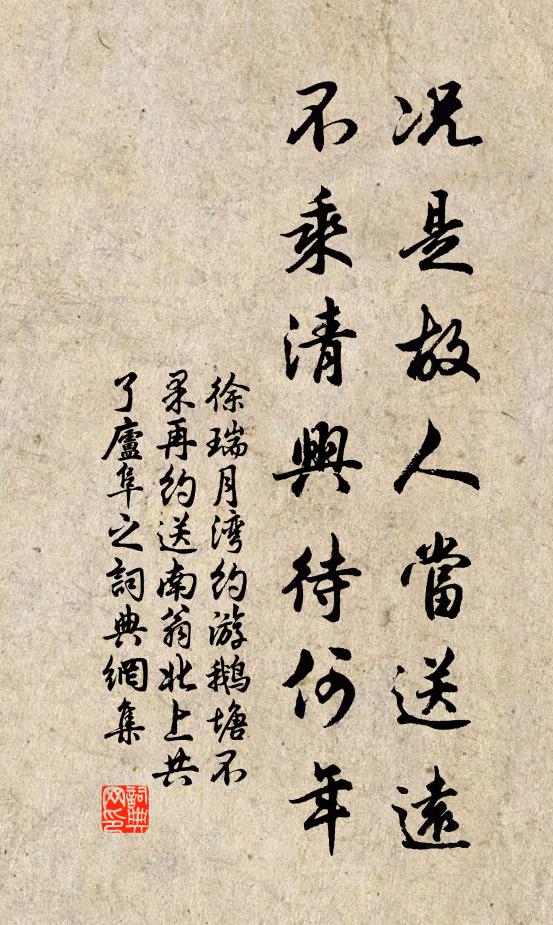 况是故人當送遠
不乘清興待何年
徐瑞月湾約游鵝塘不
果再約送南翁北上共
了廬阜之詞典網集
詞典
网印